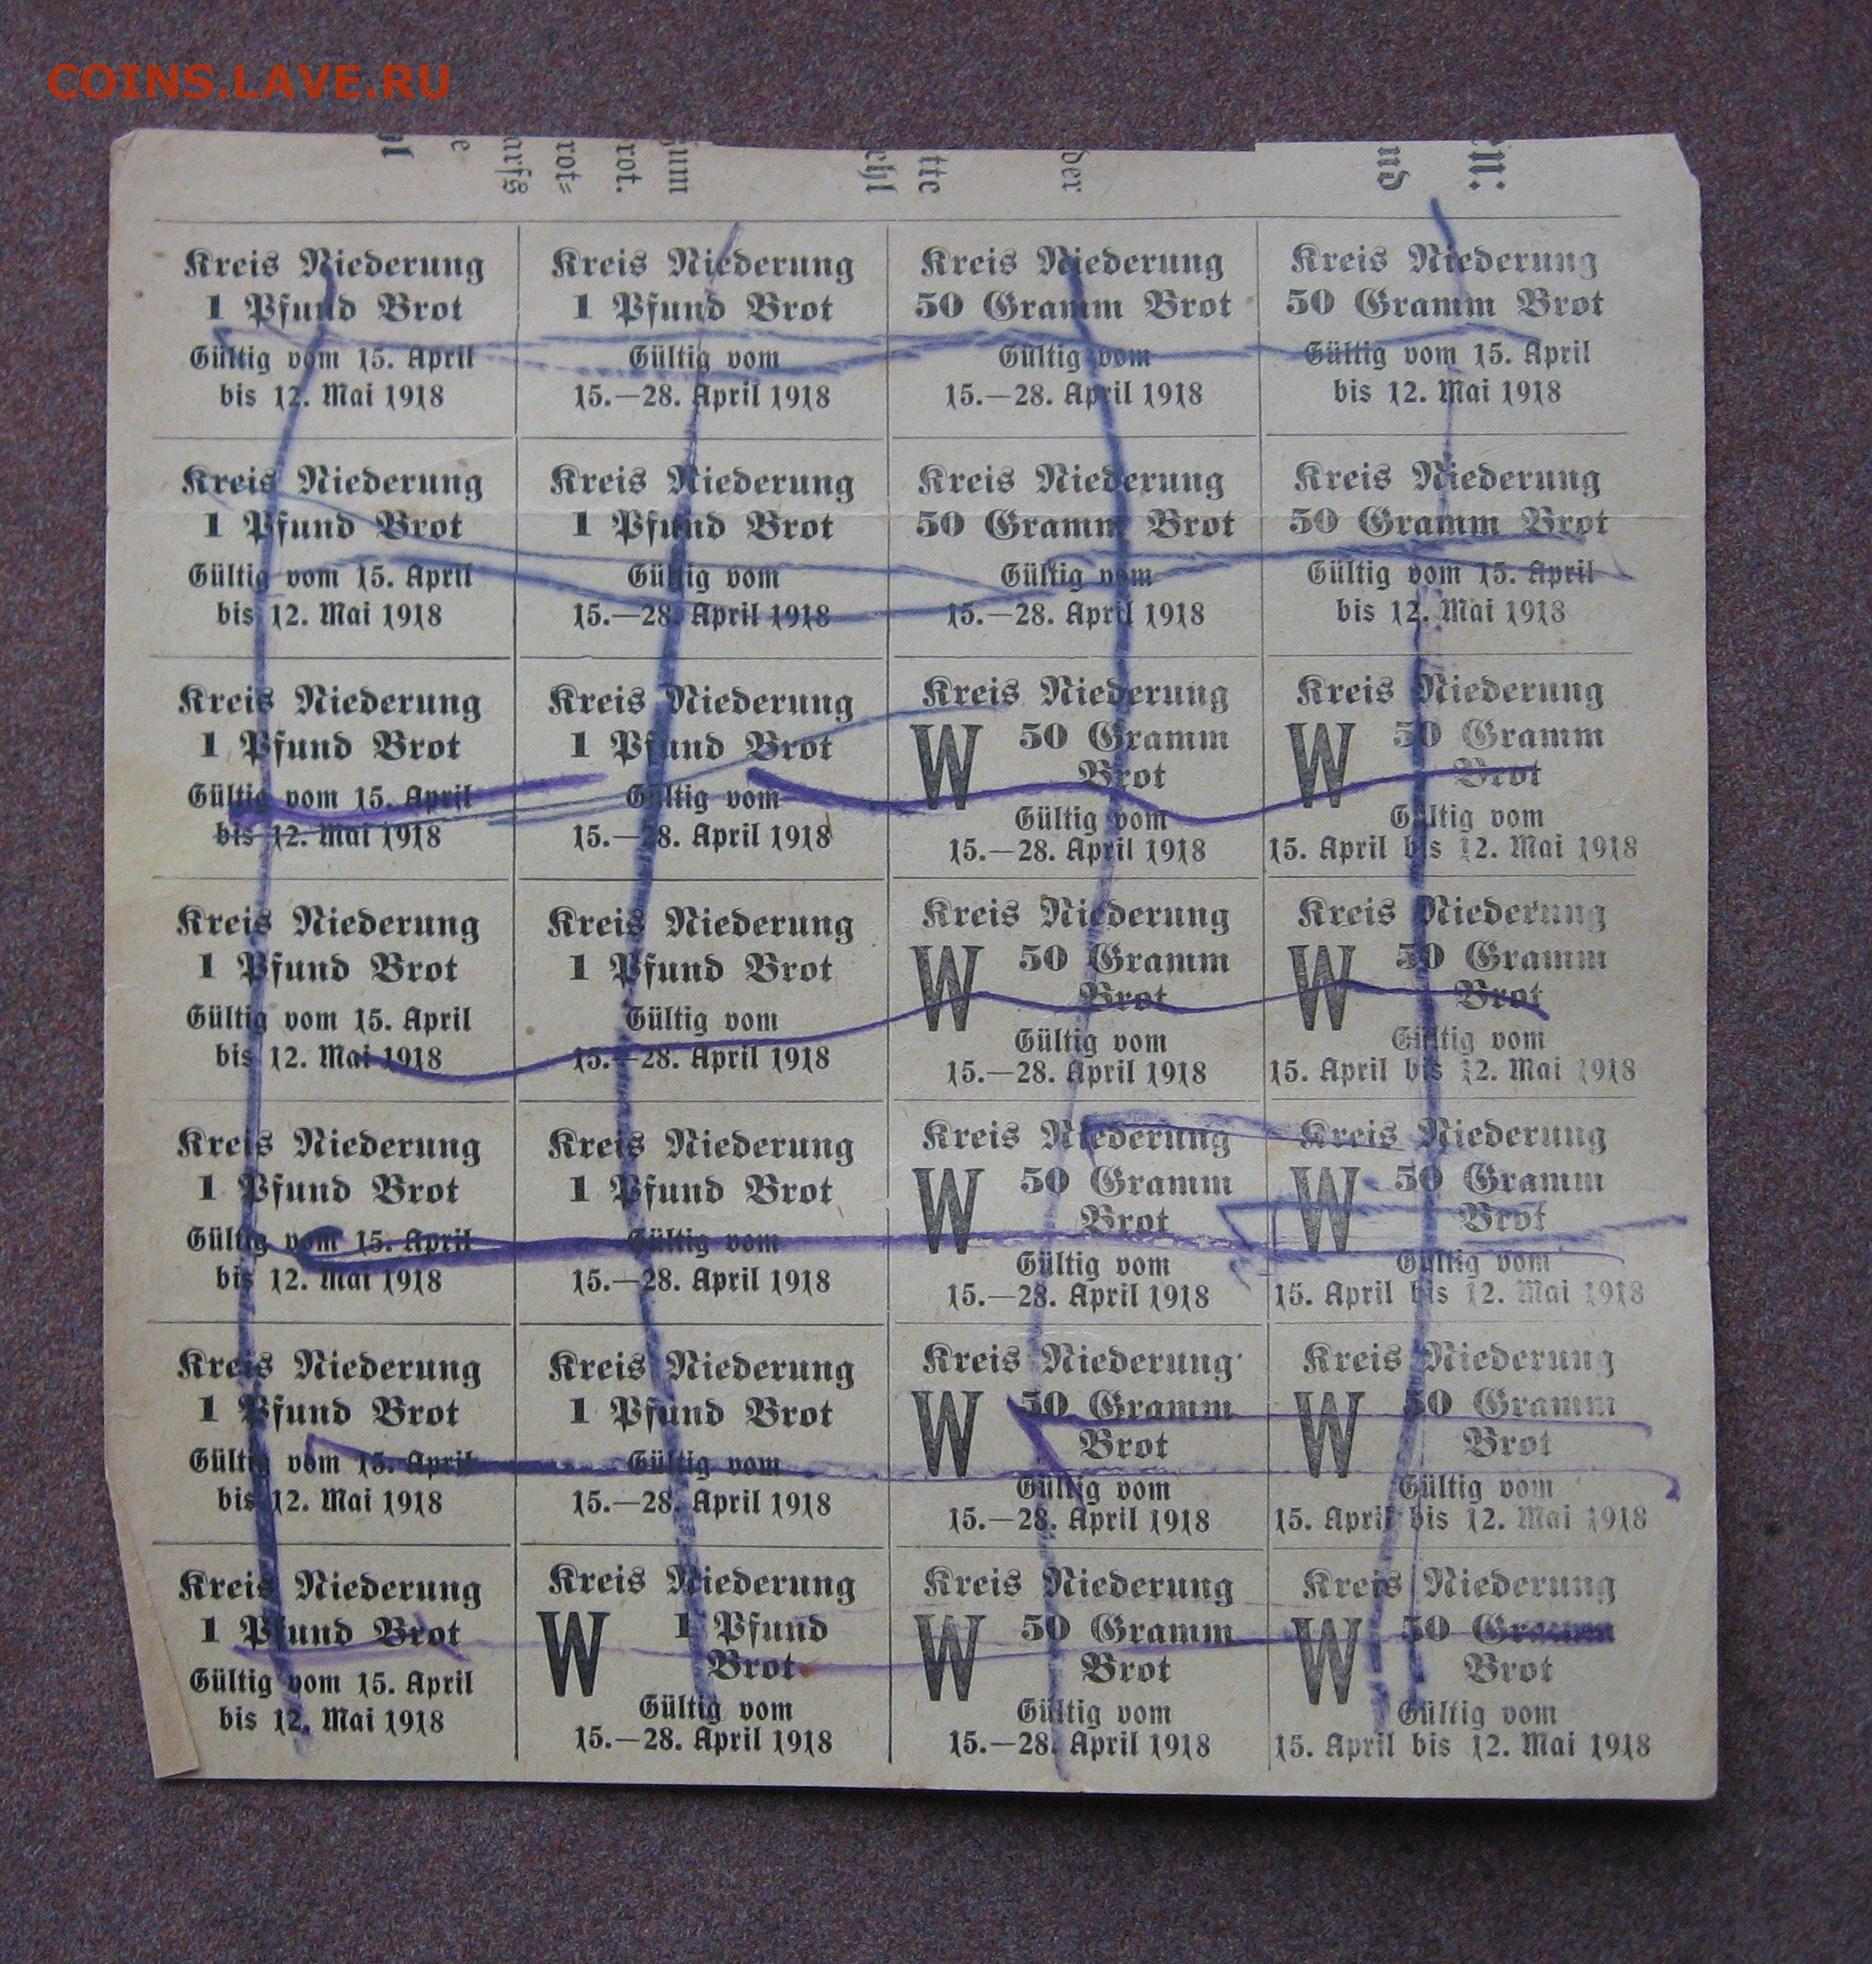 COINS.LAVE.RU
arfs
rot=
rot.
tte
Kreis Niederung
1 Pfund Brot
Gültig vom 15. April
bis 12. Mai 1918
Kreis Niederung
1 Pfund Brot
Gültig vom
15.—28. April 1918
Kreis Niederung
50 Gramm Brot
Gültig vom
15.—28. April 1918
Kreis Niederung
50 Gramm Brot
Gültig vom 15. April
bis 12. Mai 1918
Kreis Niederung
1 Pfund Brot
Gültig vom 15. April
bis 12. Mai 1918
Kreis Niederung
1 Pfund Brot
Gültig vom
15.—28. April 1918
Kreis Niederung
50 Gramm Brot
Gültig vom
15.—28. April 1918
Kreis Niederung
50 Gramm Brot
Gültig vom 15. April
bis 12. Mai 1918
Kreis Niederung
1 Pfund Brot
Gültig vom 15. April
bis 12. Mai 1918
Kreis Niederung
1 Pfund Brot
Gültig vom
15.—28. April 1918
Kreis Niederung
W 50 Gramm
Brot
Gültig vom
15.—28. April 1918
Kreis Niederung
W 50 Gramm
Brot
Gültig vom
15. April bis 12. Mai 1918
Kreis Niederung
1 Pfund Brot
Gültig vom 15. April
bis 12. Mai 1918
Kreis Niederung
1 Pfund Brot
Gültig vom
15.—28. April 1918
Kreis Niederung
W 50 Gramm
Brot
Gültig vom
15.—28. April 1918
Kreis Niederung
W 50 Gramm
Brot
Gültig vom
15. April bis 12. Mai 1918
Kreis Niederung
1 Pfund Brot
Gültig vom 15. April
bis 12. Mai 1918
Kreis Niederung
1 Pfund Brot
Gültig vom
15.—28. April 1918
Kreis Niederung
W 50 Gramm
Brot
Gültig vom
15.—28. April 1918
Kreis Niederung
W 50 Gramm
Brot
Gültig vom
15. April bis 12. Mai 1918
Kreis Niederung
1 Pfund Brot
Gültig vom 15. April
bis 12. Mai 1918
Kreis Niederung
1 Pfund Brot
Gültig vom
15.—28. April 1918
Kreis Niederung
W 50 Gramm
Brot
Gültig vom
15.—28. April 1918
Kreis Niederung
W 50 Gramm
Brot
Gültig vom
15. April bis 12. Mai 1918
Kreis Niederung
1 Pfund Brot
Gültig vom 15. April
bis 12. Mai 1918
Kreis Niederung
W 1 Pfund
Brot
Gültig vom
15.—28. April 1918
Kreis Niederung
W 50 Gramm
Brot
Gültig vom
15.—28. April 1918
Kreis Niederung
W 50 Gramm
Brot
Gültig vom
15. April bis 12. Mai 1918